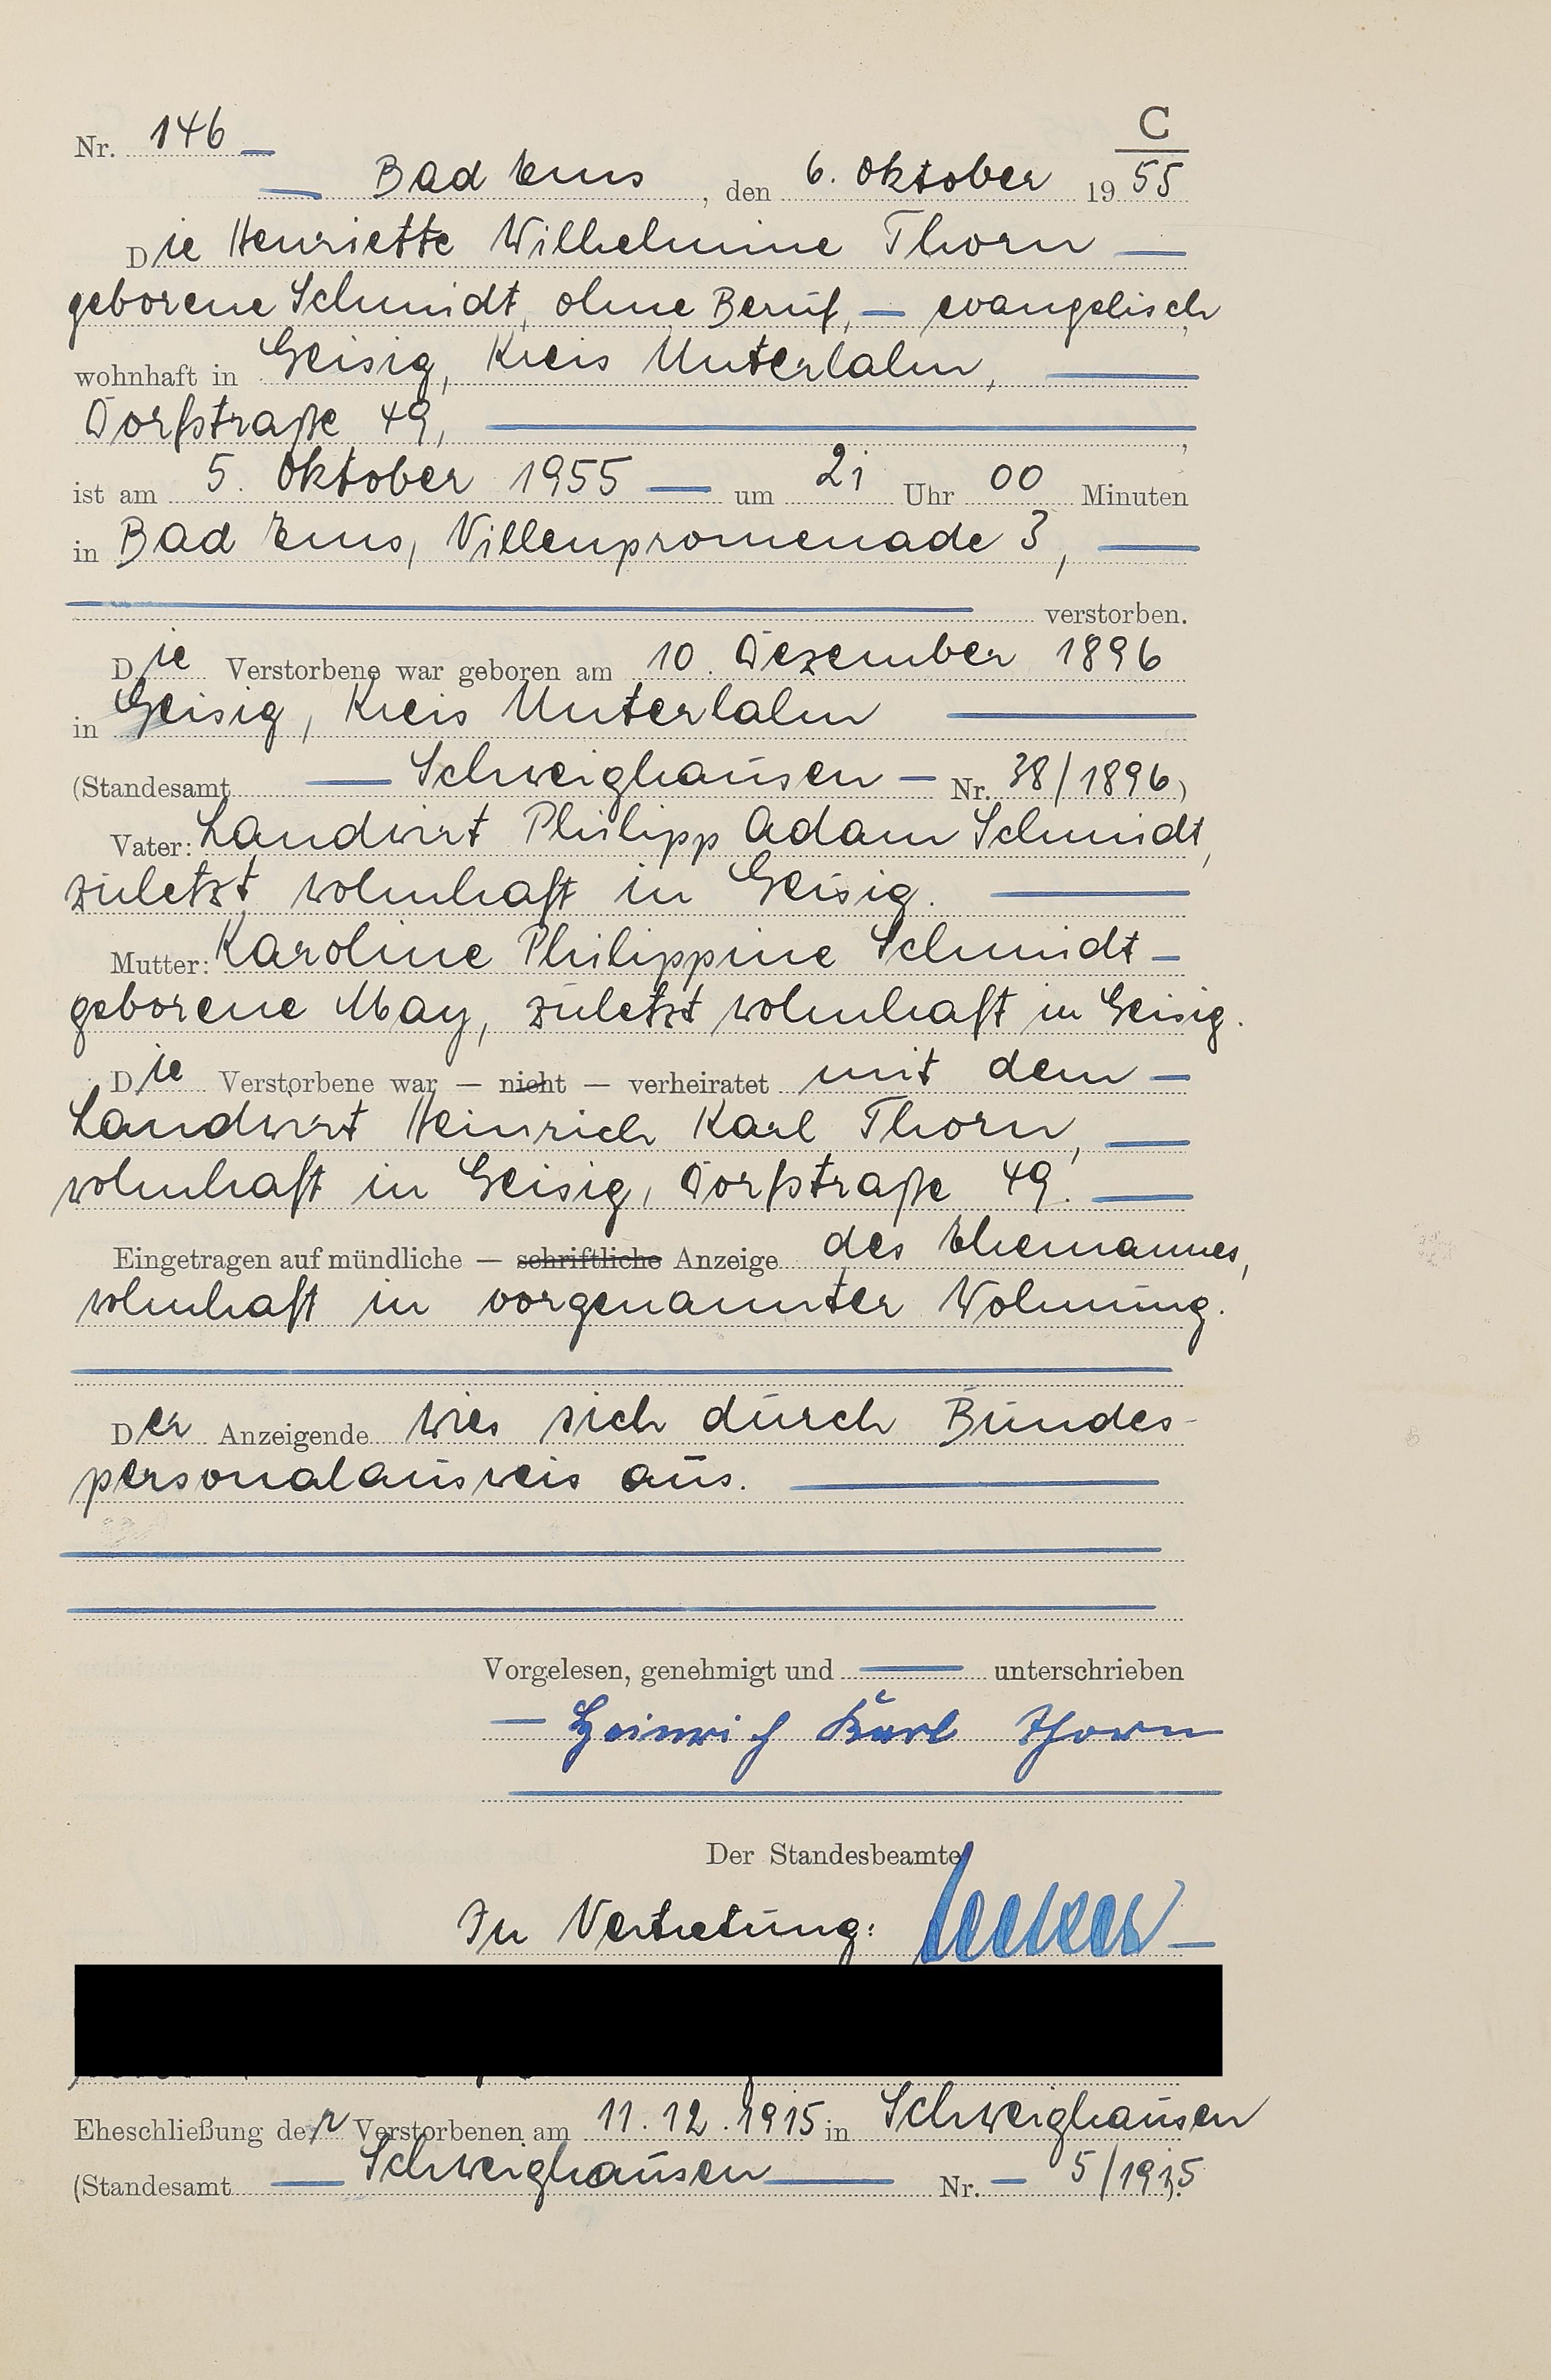 C
Nr. 146
Bad Ems, den 6. Oktober 1955
Die Henriette Wilhelmine Thorn
geborene Schmidt, ohne Beruf, — evangelisch,
wohnhaft in Geisig, Kreis Unterlahn,
Dorfstraße 49,
ist am 5. Oktober 1955 um 21 Uhr 00 Minuten
in Bad Ems, Villenpromenade 3,
verstorben.
Die Verstorbene war geboren am 10. Dezember 1896
in Geisig, Kreis Unterlahn
(Standesamt Schweighausen Nr. 38/1896)
Vater: Landwirt Philipp Adam Schmidt,
zuletzt wohnhaft in Geisig.
Mutter: Karoline Philippine Schmidt
geborene May, zuletzt wohnhaft in Geisig.
Die Verstorbene war — nicht — verheiratet mit dem
Landwirt Heinrich Karl Thorn,
wohnhaft in Geisig, Dorfstraße 49.
Eingetragen auf mündliche — schriftliche Anzeige des Ehemannes,
wohnhaft in vorgenannter Wohnung.
Der Anzeigende wies sich durch Bundes-
personalausweis aus.
Vorgelesen, genehmigt und unterschrieben
Heinrich Karl Thorn
Der Standesbeamte
In Vertretung:
Eheschließung der Verstorbenen am 11.12.1915 in Schweighausen
(Standesamt Schweighausen Nr. 5/1915).